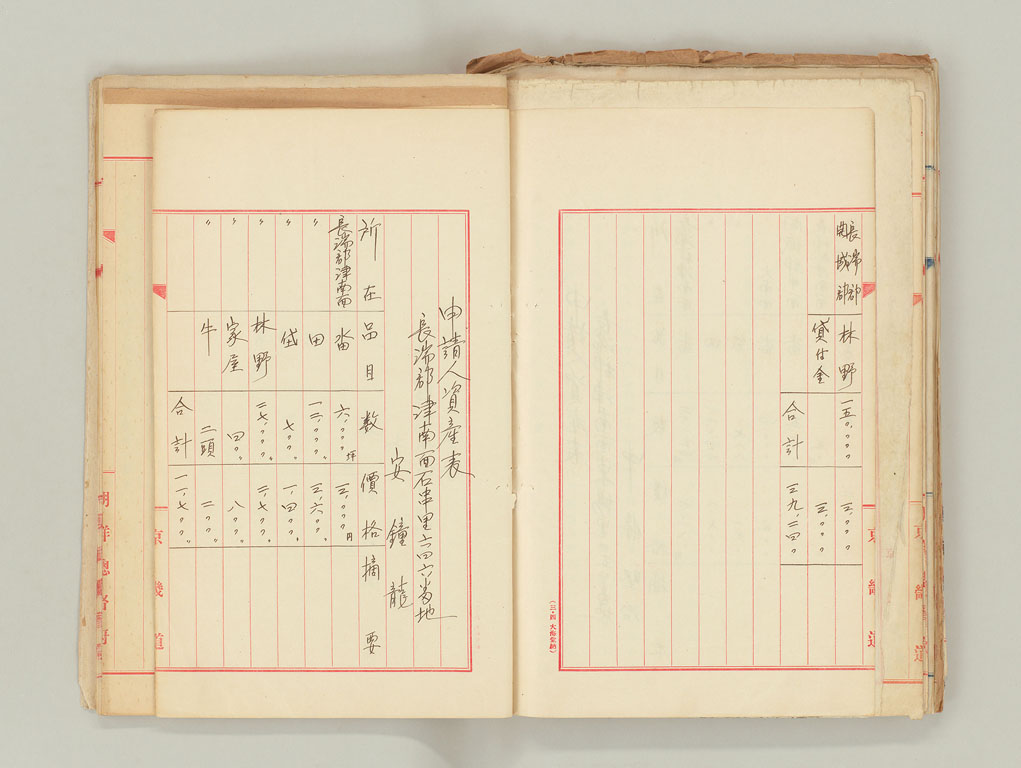 長湍郡
開城郡 林野 一五、〇〇〇 三、〇〇〇
貸付金 三、〇〇〇
合計 三九、二四〇
申請人資産表
長湍郡津南面石串里六四六番地
安鐘龍
所在 品目 数 價格 摘要
長湍郡津南面 畓 六、〇〇〇坪 三、〇〇〇円
〃 田 一二、〇〇〇 三、六〇〇
〃 垈 七〇〇 一、四〇〇
〃 林野 二七、〇〇〇 二、七〇〇
〃 家屋 四〇 八〇〇
〃 牛 二頭 二〇〇
合計 一一、七〇〇
京畿道
朝鮮總督府